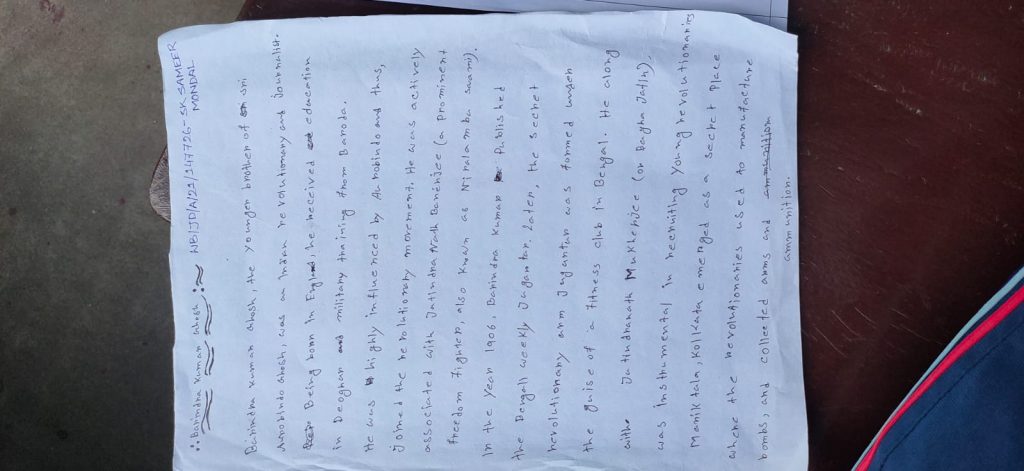 WB/JD/A/21/147726 - SK SAMEER
MONDAL
∴ Barindra Kumar Ghosh :~
Barindra Kumar Ghosh, the younger brother of sri
Aurobindo Ghosh, was an Indian revolutionary and Journalist.
Being born in England, he received education
in Deoghar and military training from Baroda.
He was highly influenced by Aurobindo and thus,
joined the revolutionary movement. He was actively
associated with Jatindranath Banerjee (a prominent
freedom fighter, also known as Niralamba Swami).
In the year 1906, Barindra Kumar Published
the Bengali weekly Jugantar. Later, the secret
revolutionary arm Jugantar was formed under
the guise of a fitness club in Bengal. He along
with Jatindranath Mukherjee (or Bagha Jatin),
was instrumental in recruiting young revolutionaries
Maniktala, Kolkata emerged as a secret place
where the revolutionaries used to manufacture
bombs, and collected arms and ammunition
ammunition.